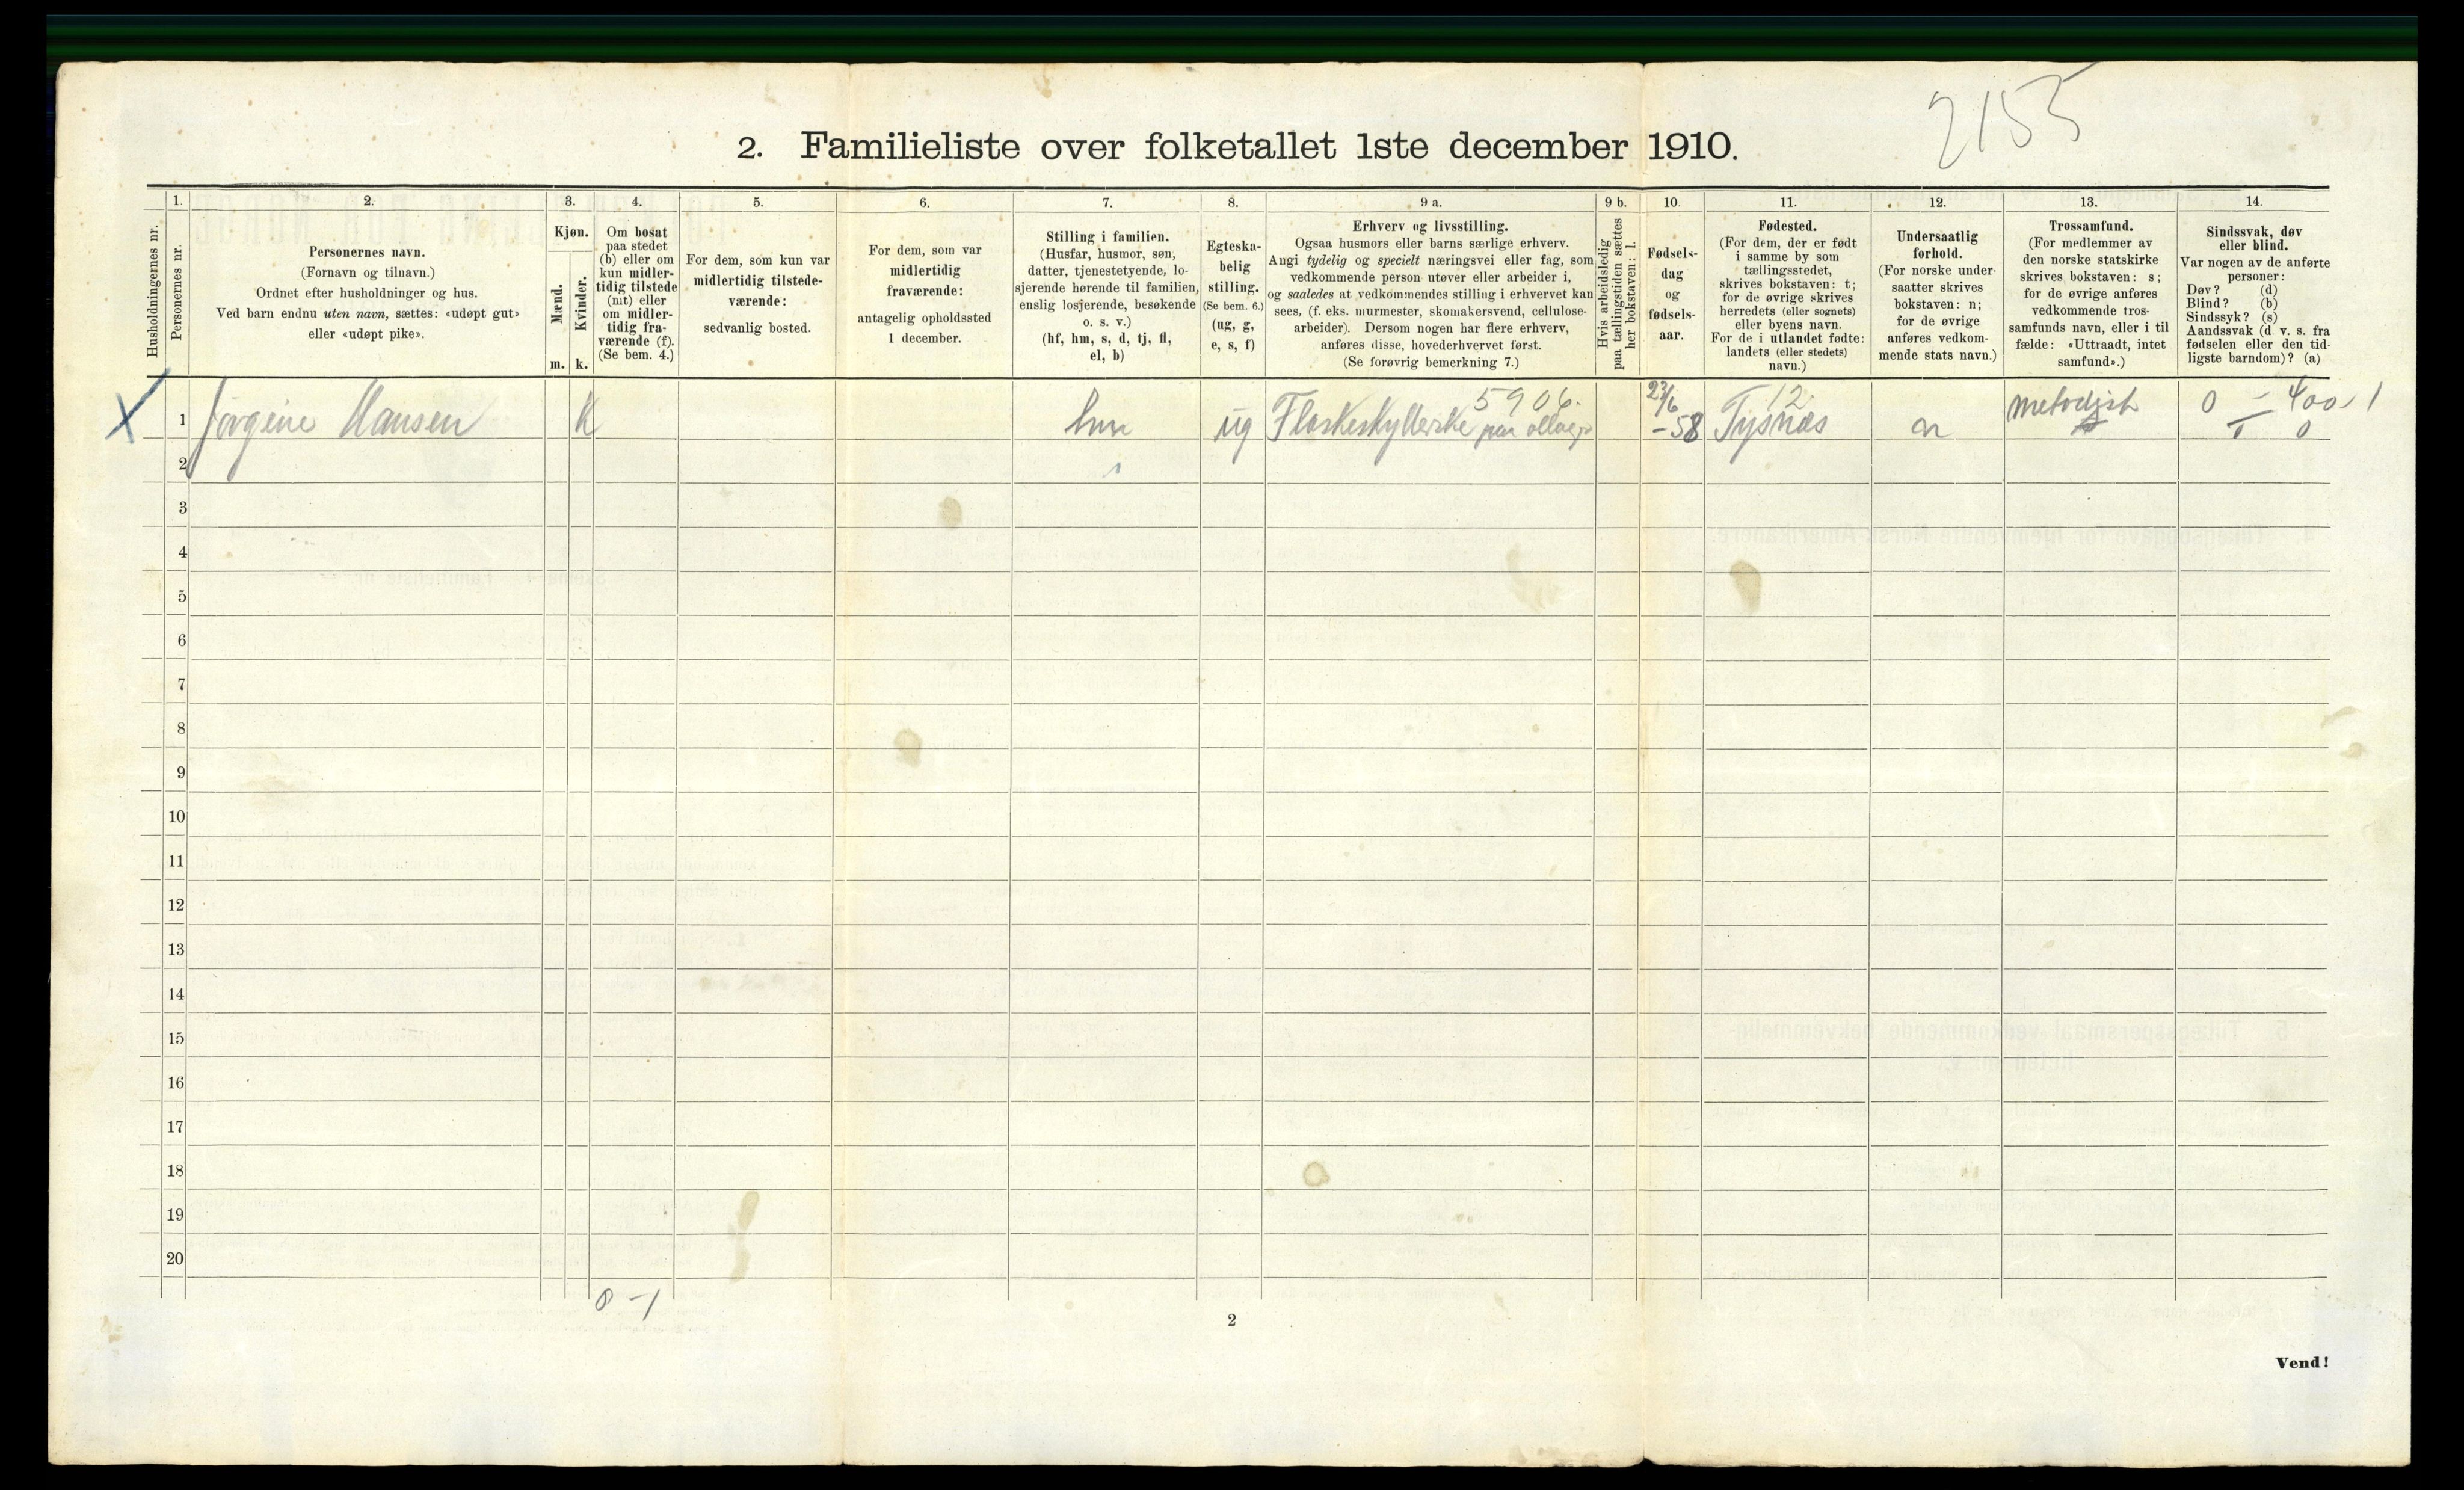 2155
2. Familieliste over folketallet 1ste december 1910.
Husholdningernes nr.
1.
Personernes nr.
2.
Personernes navn.
(Fornavn og tilnavn.)
Ordnet efter husholdninger og hus.
Ved barn endnu uten navn, sættes: «udøpt gut»
eller «udøpt pike».
3.
Kjøn.
Mænd.
Kvinder.
m. k.
4.
Om bosat
paa stedet
(b) eller om
kun midler-
tidig tilstede
(mt) eller
om midler-
tidig fra-
værende (f).
(Se bem. 4.)
5.
For dem, som kun var
midlertidig tilstede-
værende:
sedvanlig bosted.
6.
For dem, som var
midlertidig
fraværende:
antagelig opholdssted
1 december.
7.
Stilling i familien.
(Husfar, husmor, søn,
datter, tjenestetyende, lo-
sjerende hørende til familien,
enslig losjerende, besøkende
o. s. v.)
(hf, hm, s, d, tj, fl,
el, b)
8.
Egteska-
belig
stilling.
(Se bem. 6.)
(ug, g,
e, s, f)
9 a.
Erhverv og livsstilling.
Ogsaa husmors eller barns særlige erhverv.
Angi tydelig og specielt næringsvei eller fag, som
vedkommende person utøver eller arbeider i,
og saaledes at vedkommendes stilling i erhvervet kan
sees, (f. eks. murmester, skomakersvend, cellulose-
arbeider). Dersom nogen har flere erhverv,
anføres disse, hovederhvervet først.
(Se forøvrig bemerkning 7.)
9 b.
Hvis arbeidsledig
paa tællingstiden sættes
her bokstaven: l.
10.
Fødsels-
dag
og
fødsels-
aar.
11.
Fødested.
(For dem, der er født
i samme by som
tællingsstedet,
skrives bokstaven: t;
for de øvrige skrives
herredets (eller sognets)
eller byens navn.
For de i utlandet fødte:
landets (eller stedets)
navn.)
12.
Undersaatlig
forhold.
(For norske under-
saatter skrives
bokstaven: n;
for de øvrige
anføres vedkom-
mende stats navn.)
13.
Trossamfund.
(For medlemmer av
den norske statskirke
skrives bokstaven: s;
for de øvrige anføres
vedkommende tros-
samfunds navn, eller i til
fælde: «Uttraadt, intet
samfund».)
14.
Sindssvak, døv
eller blind.
Var nogen av de anførte
personer:
Døv? (d)
Blind? (b)
Sindssyk? (s)
Aandssvak (d. v. s. fra
fødselen eller den tid-
ligste barndom)? (a)
X 1 Jørgine Hansen K hm ug Flaskeskyllerske paa 5906. 23/6 -58 12. Tysnæs n metodist 0 - 400-1
0
2
3
4
5
6
7
8
9
10
11
12
13
14
15
16
17
18
19
20
0-1
2
Vend!